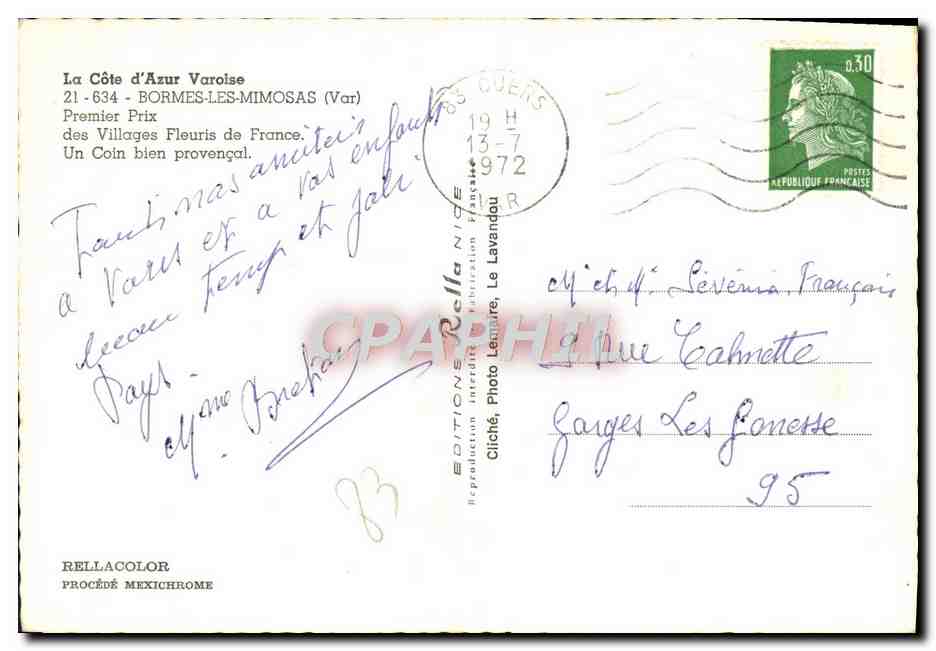 La Côte d'Azur Varoise
21 - 634 - BORMES-LES-MIMOSAS (Var)
Premier Prix
des Villages Fleuris de France.
Un Coin bien provençal.
nos amitiés
a vous et a vos enfants
beau temp et joli
Pays.
Mme
83
RELLACOLOR
PROCÉDÉ MEXICHROME
EDITIONS Rella NICE
Reproduction interdite Fabrication Française
Cliché, Photo Lemaire, Le Lavandou
83 CUERS
19 H
13-7
1972
VAR
0,30
POSTES
RÉPUBLIQUE FRANÇAISE
Mr et Me Sévérin François
9 Rue Calmette
Garges Les Gonesse
95
CPAPHIL